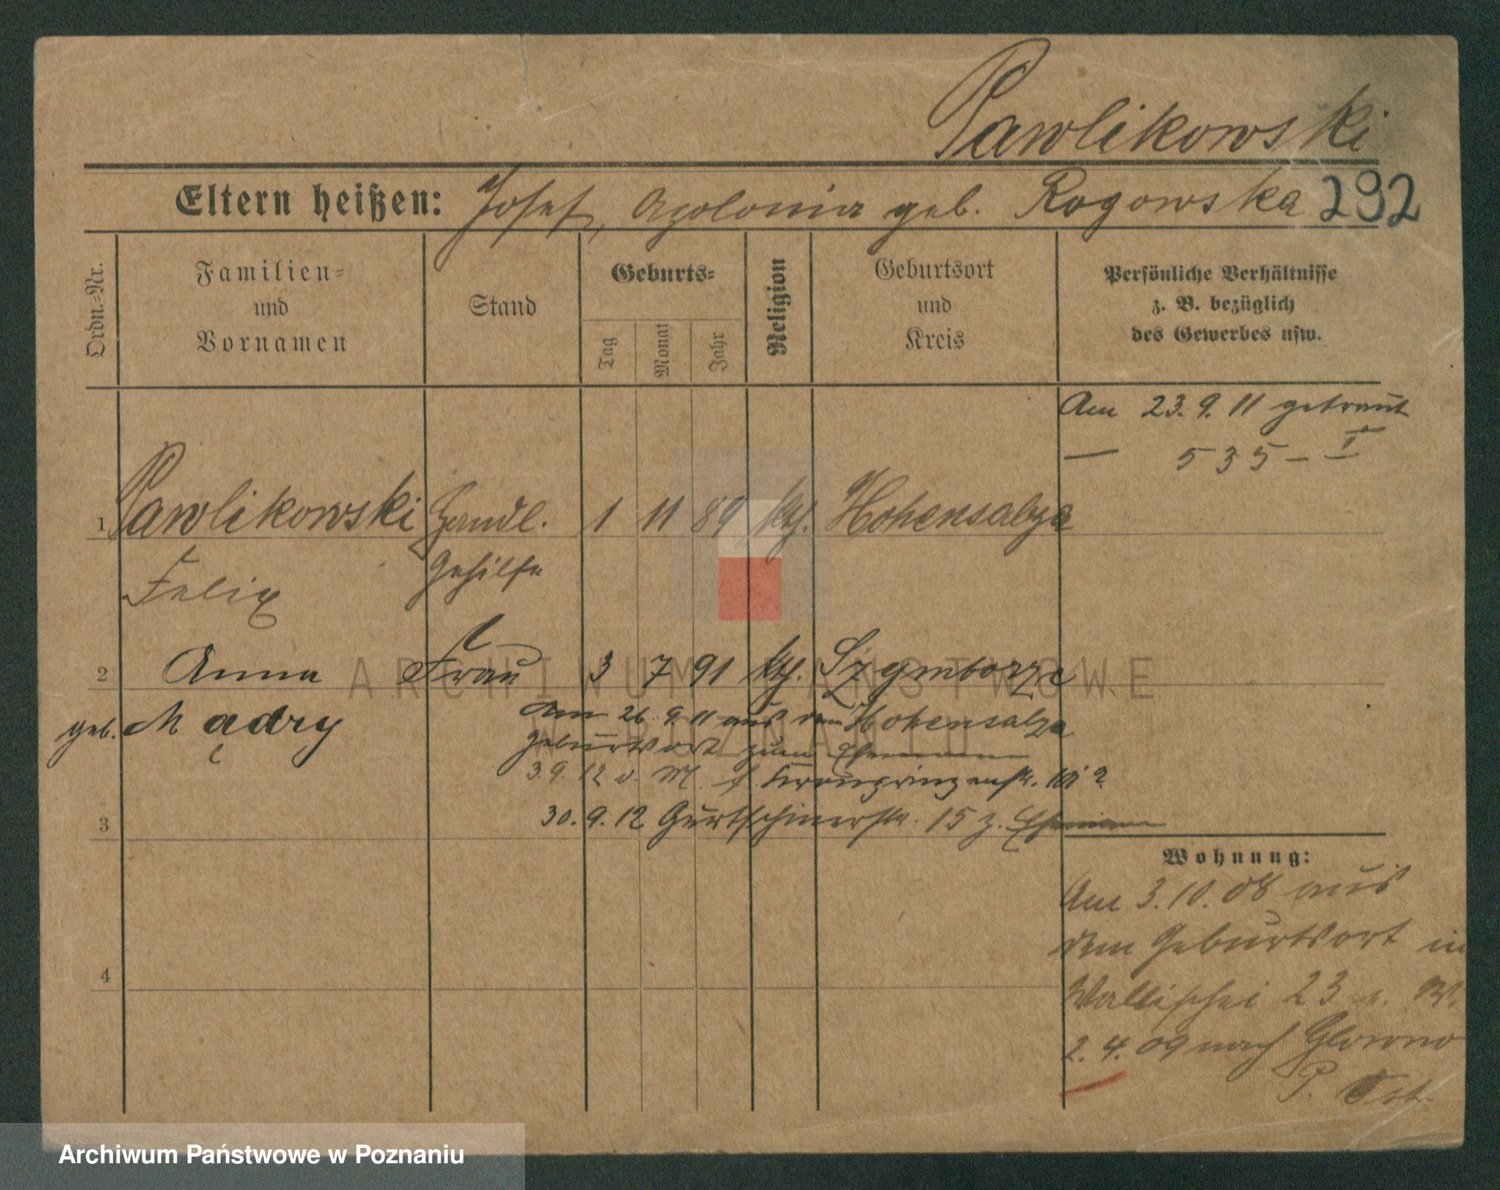 Pawlikowski
Eltern heißen: Josef, Apolonia geb. Rogowska 292
Ordn.-Nr.
Familien-
und
Vornamen
Stand
Geburts-
Tag
Monat
Jahr
Religion
Geburtsort
und
Kreis
Persönliche Verhältnisse
z. B. bezüglich
des Gewerbes usw.
Am 23.9.11 getraut
— 535 – I
1 Pawlikowski Handl. 1 11 89 kth. Hohensalza
Felix Gehilfe
2 Anna Frau 3 7 91 kth. Szymborze
geb. Mądry
Am 26.9.11 aus dem Hohensalza
Geburtsort zum Ehemann
3.9.12 v. M. Kronprinzenstr.
3
30.9.12 Gurtschinerstr. 15 z. Ehemann
Wohnung:
Am 3.10.08 aus
dem Geburtsort in
Wallischei 23
4
2.4.09 nach Glowno
P. Ost.
ARCHIWUM PAŃSTWOWE
W POZNANIU
Archiwum Państwowe w Poznaniu